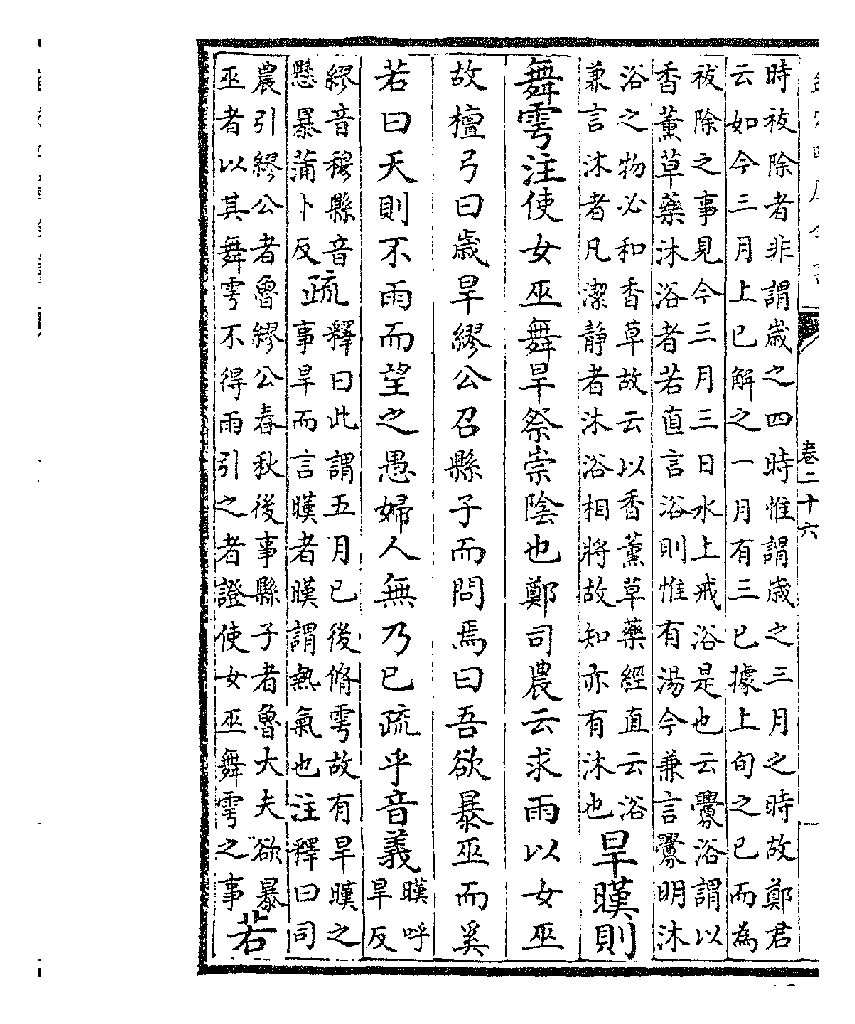 卷二十六
時祓除者非謂歲之四時惟謂歲之三月之時故鄭君
云如今三月上巳解之一月有三巳據上旬之巳而為
祓除之事見今三月三日水上戒浴是也云釁浴謂以
香薰草藥沐浴者若直言浴則惟有湯今兼言釁明沐
浴之物必和香草故云以香薰草藥經直云浴
兼言沐者凡潔靜者沐浴相將故知亦有沐也
旱暵則
舞雩注使女巫舞旱祭崇陰也鄭司農云求雨以女巫
故檀弓曰歲旱繆公召縣子而問焉曰吾欲暴巫而奚
若曰天則不雨而望之愚婦人無乃已疏乎音義
暵呼
旱反
繆音穆縣音
懸暴蒲卜反
疏
釋曰此謂五月已後脩雩故有旱暵之
事旱而言暵者暵謂熱氣也注釋曰司
農引繆公者魯繆公春秋後事縣子者魯大夫欲暴
巫者以其舞雩不得雨引之者證使女巫舞雩之事
若